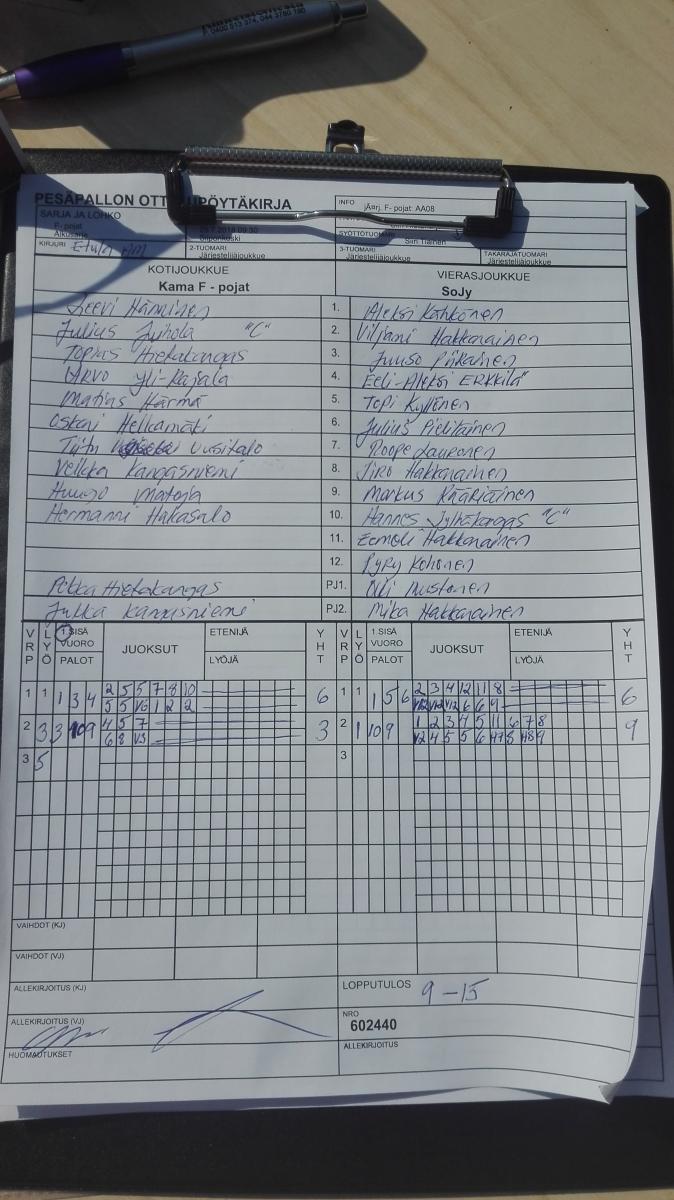 0400 913 374, 044 3760 190
PESÄPALLON OTT UPÖYTÄKIRJA
INFO jÄrj. F- pojat AA08
SARJA JA LOHKO
F- pojat
Alkusarja
2018 09:30
SYÖTTÖTUOMARI
Siiri Tiainen
KIRJURI
2-TUOMARI
Järjestelijäjoukkue
3-TUOMARI
Järjestelijäjoukkue
TAKARAJATUOMARI
Järjestelijäjoukkue
KOTIJOUKKUE VIERASJOUKKUE
Kama F - pojat SoJy
Leevi Hänninen 1. Aleksi Kähkönen
Julius Juhola "C" 2. Viljami Hakkarainen
Topias Hietakangas 3. Juuso Piikainen
Arvo Yli-Rajala 4. Eeli-Aleksi Erkkilä
Matias Härmä 5. Topi Kyllönen
Oskari Hellamäki 6. Julius Pielitäinen
Tiitu Uusitalo 7. Roope Lauronen
Veikka Kangasniemi 8. Jiro Hakkarainen
Huugo Matoja 9. Markus Kääriäinen
Hermanni Hakasalo 10. Hannes Jylhäkangas "C"
11. Eemeli Hakkarainen
12. Pyry Kohonen
Pekka Hietakangas PJ1. Olli Mustonen
Jukka Kangasniemi PJ2. Mika Hakkarainen
VRP LYÖ 1.SISÄ VUORO PALOT JUOKSUT ETENIJÄ LYÖJÄ YHT VRP LYÖ 1.SISÄ VUORO PALOT JUOKSUT ETENIJÄ LYÖJÄ YHT
1 1 1 3 4 2 5 5 7 8 10 6 1 1 1 5 6 2 3 4 12 11 8 6
5 5 V6 1 2 2 V12 V12 V12 6 6 9
2 3 3 10 9 4 5 7 3 2 1 10 9 1 2 3 4 5 11 6 7 8 9
6 8 V3 V2 4 5 5 6 H7 8 H8 9
3 5 3
VAIHDOT (KJ)
VAIHDOT (VJ)
ALLEKIRJOITUS (KJ) LOPPUTULOS 9 - 15
ALLEKIRJOITUS (VJ) NRO
602440
HUOMAUTUKSET ALLEKIRJOITUS